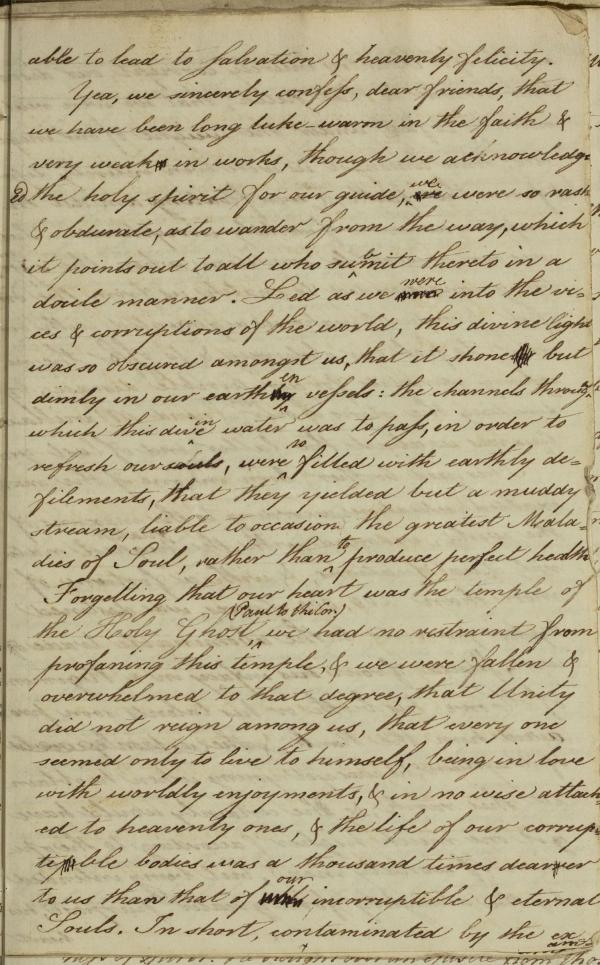 able to lead to salvation & heavenly felicity.
Yea, we sincerely confess, dear friends, that
we have been long luke-warm in the faith &
very weak in works, though we acknowledge
ed the holy spirit for our guide, we were so rash
& obdurate, as to wander from the way, which
it points out to all who submit thereto in a
docile manner. Led as we were into the vi=
ces & corruptions of the world, this divine light
was so obscured amongst us, that it shone but
dimly in our earthen vessels: the channels through
which this divine water was to pass, in order to
refresh our souls, were so filled with earthly de=
filements, that they yielded but a muddy
stream, liable to occasion the greatest Mala=
dies of Soul, rather than to produce perfect health
Forgetting that our heart was the temple of
(Paul to the Cor.)
the Holy Ghost we had no restraint from
profaning this temple, & we were fallen &
overwhelmed to that degree, that Unity
did not reign among us, that every one
seemed only to live to himself, being in love
with worldly enjoyments, & in no wise attach=
ed to heavenly ones, & the life of our corrup=
tible bodies was a thousand times dearer
to us than that of our incorruptible & eternal
Souls. In short, contaminated by the ex
am